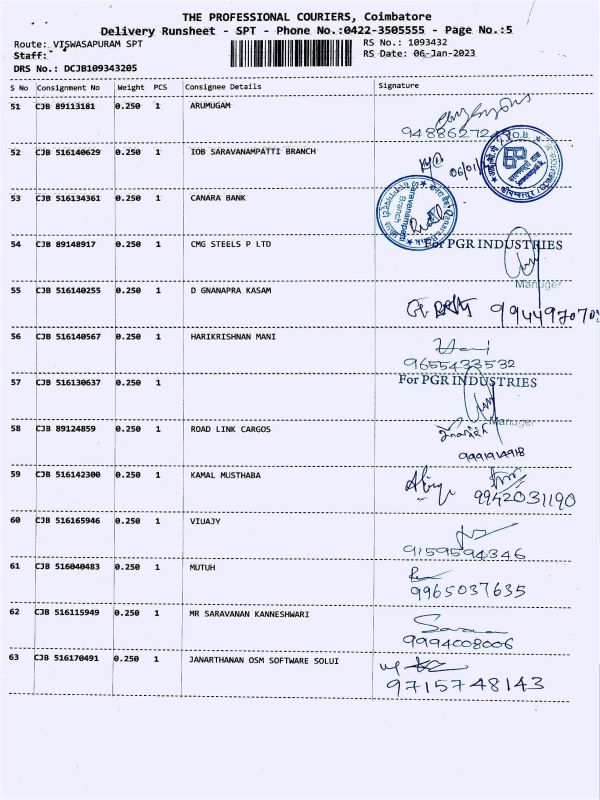 THE PROFESSIONAL COURIERS, Coimbatore
Delivery Runsheet - SPT - Phone No.:0422-3505555 - Page No.:5
Route: VISWASAPURAM SPT
RS No.: 1093432
Staff:
RS Date: 06-Jan-2023
DRS No.: DCJB109343205
S No Consignment No Weight PCS Consignee Details Signature
51 CJB 89113181 0.250 1 ARUMUGAM
94886272
52 CJB 516140629 0.250 1 IOB SARAVANAMPATTI BRANCH
06/01/
53 CJB 516134361 0.250 1 CANARA BANK
Saravanampatti
Branch
54 CJB 89148917 0.250 1 CMG STEELS P LTD
For PGR INDUSTRIES
Manager
55 CJB 516140255 0.250 1 D GNANAPRA KASAM
56 CJB 516140567 0.250 1 HARIKRISHNAN MANI
Hani
9655433532
57 CJB 516130637 0.250 1
For PGR INDUSTRIES
Manager
58 CJB 89124859 0.250 1 ROAD LINK CARGOS
59 CJB 516142300 0.250 1 KAMAL MUSTHABA
9942031190
60 CJB 516165946 0.250 1 VIUAJY
9159594346
61 CJB 516040483 0.250 1 MUTUH
9965037635
62 CJB 516115949 0.250 1 MR SARAVANAN KANNESHWARI
9994008006
63 CJB 516170491 0.250 1 JANARTHANAN OSM SOFTWARE SOLUI
9715748143